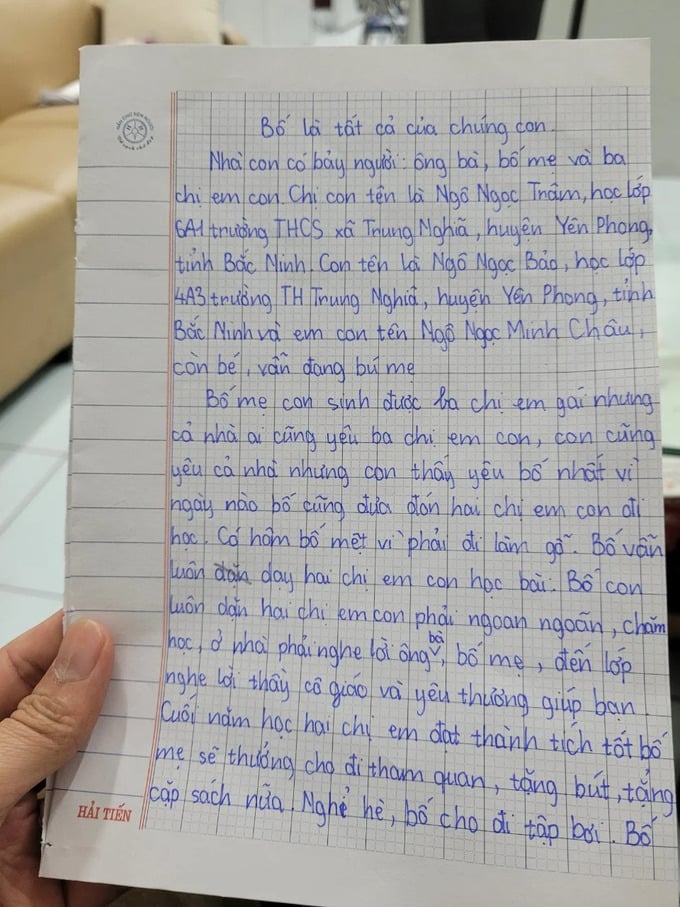 Bố là tất cả của chúng con.
Nhà con có bảy người: ông bà, bố mẹ và ba
chị em con. Chị con tên là Ngô Ngọc Trâm, học lớp
6A1 trường THCS xã Trung Nghĩa, huyện Yên Phong,
tỉnh Bắc Ninh. Con tên là Ngô Ngọc Bảo, học lớp
4A3 trường TH Trung Nghĩa, huyện Yên Phong, tỉnh
Bắc Ninh và em con tên Ngô Ngọc Minh Châu,
còn bé, vẫn đang bú mẹ
Bố mẹ con sinh được ba chị em gái nhưng
cả nhà ai cũng yêu ba chị em con, con cũng
yêu cả nhà nhưng con thấy yêu bố nhất vì
ngày nào bố cũng đưa đón hai chị em con đi
học. Có hôm bố mệt vì phải đi làm gỗ. Bố vẫn
luôn dặn dạy hai chị em con học bài. Bố con
luôn dặn hai chị em con phải ngoan ngoãn, chăm
học, ở nhà phải nghe lời ông bà, bố mẹ, đến lớp
nghe lời thầy cô giáo và yêu thương giúp bạn.
Cuối năm học hai chị em đạt thành tích tốt bố
mẹ sẽ thưởng cho đi tham quan, tặng bút, tặng
cặp sách nữa. Nghỉ hè, bố cho đi tập bơi. Bố
HẢI TIẾN